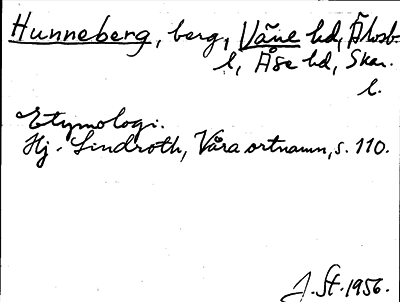 Hunneberg, berg, Väne hd, Älvsb.
l, Åse hd, Skar.
l.
Etymologi.
Hj. Lindroth, Våra ortnamn, s. 110.
J. St. 1956.